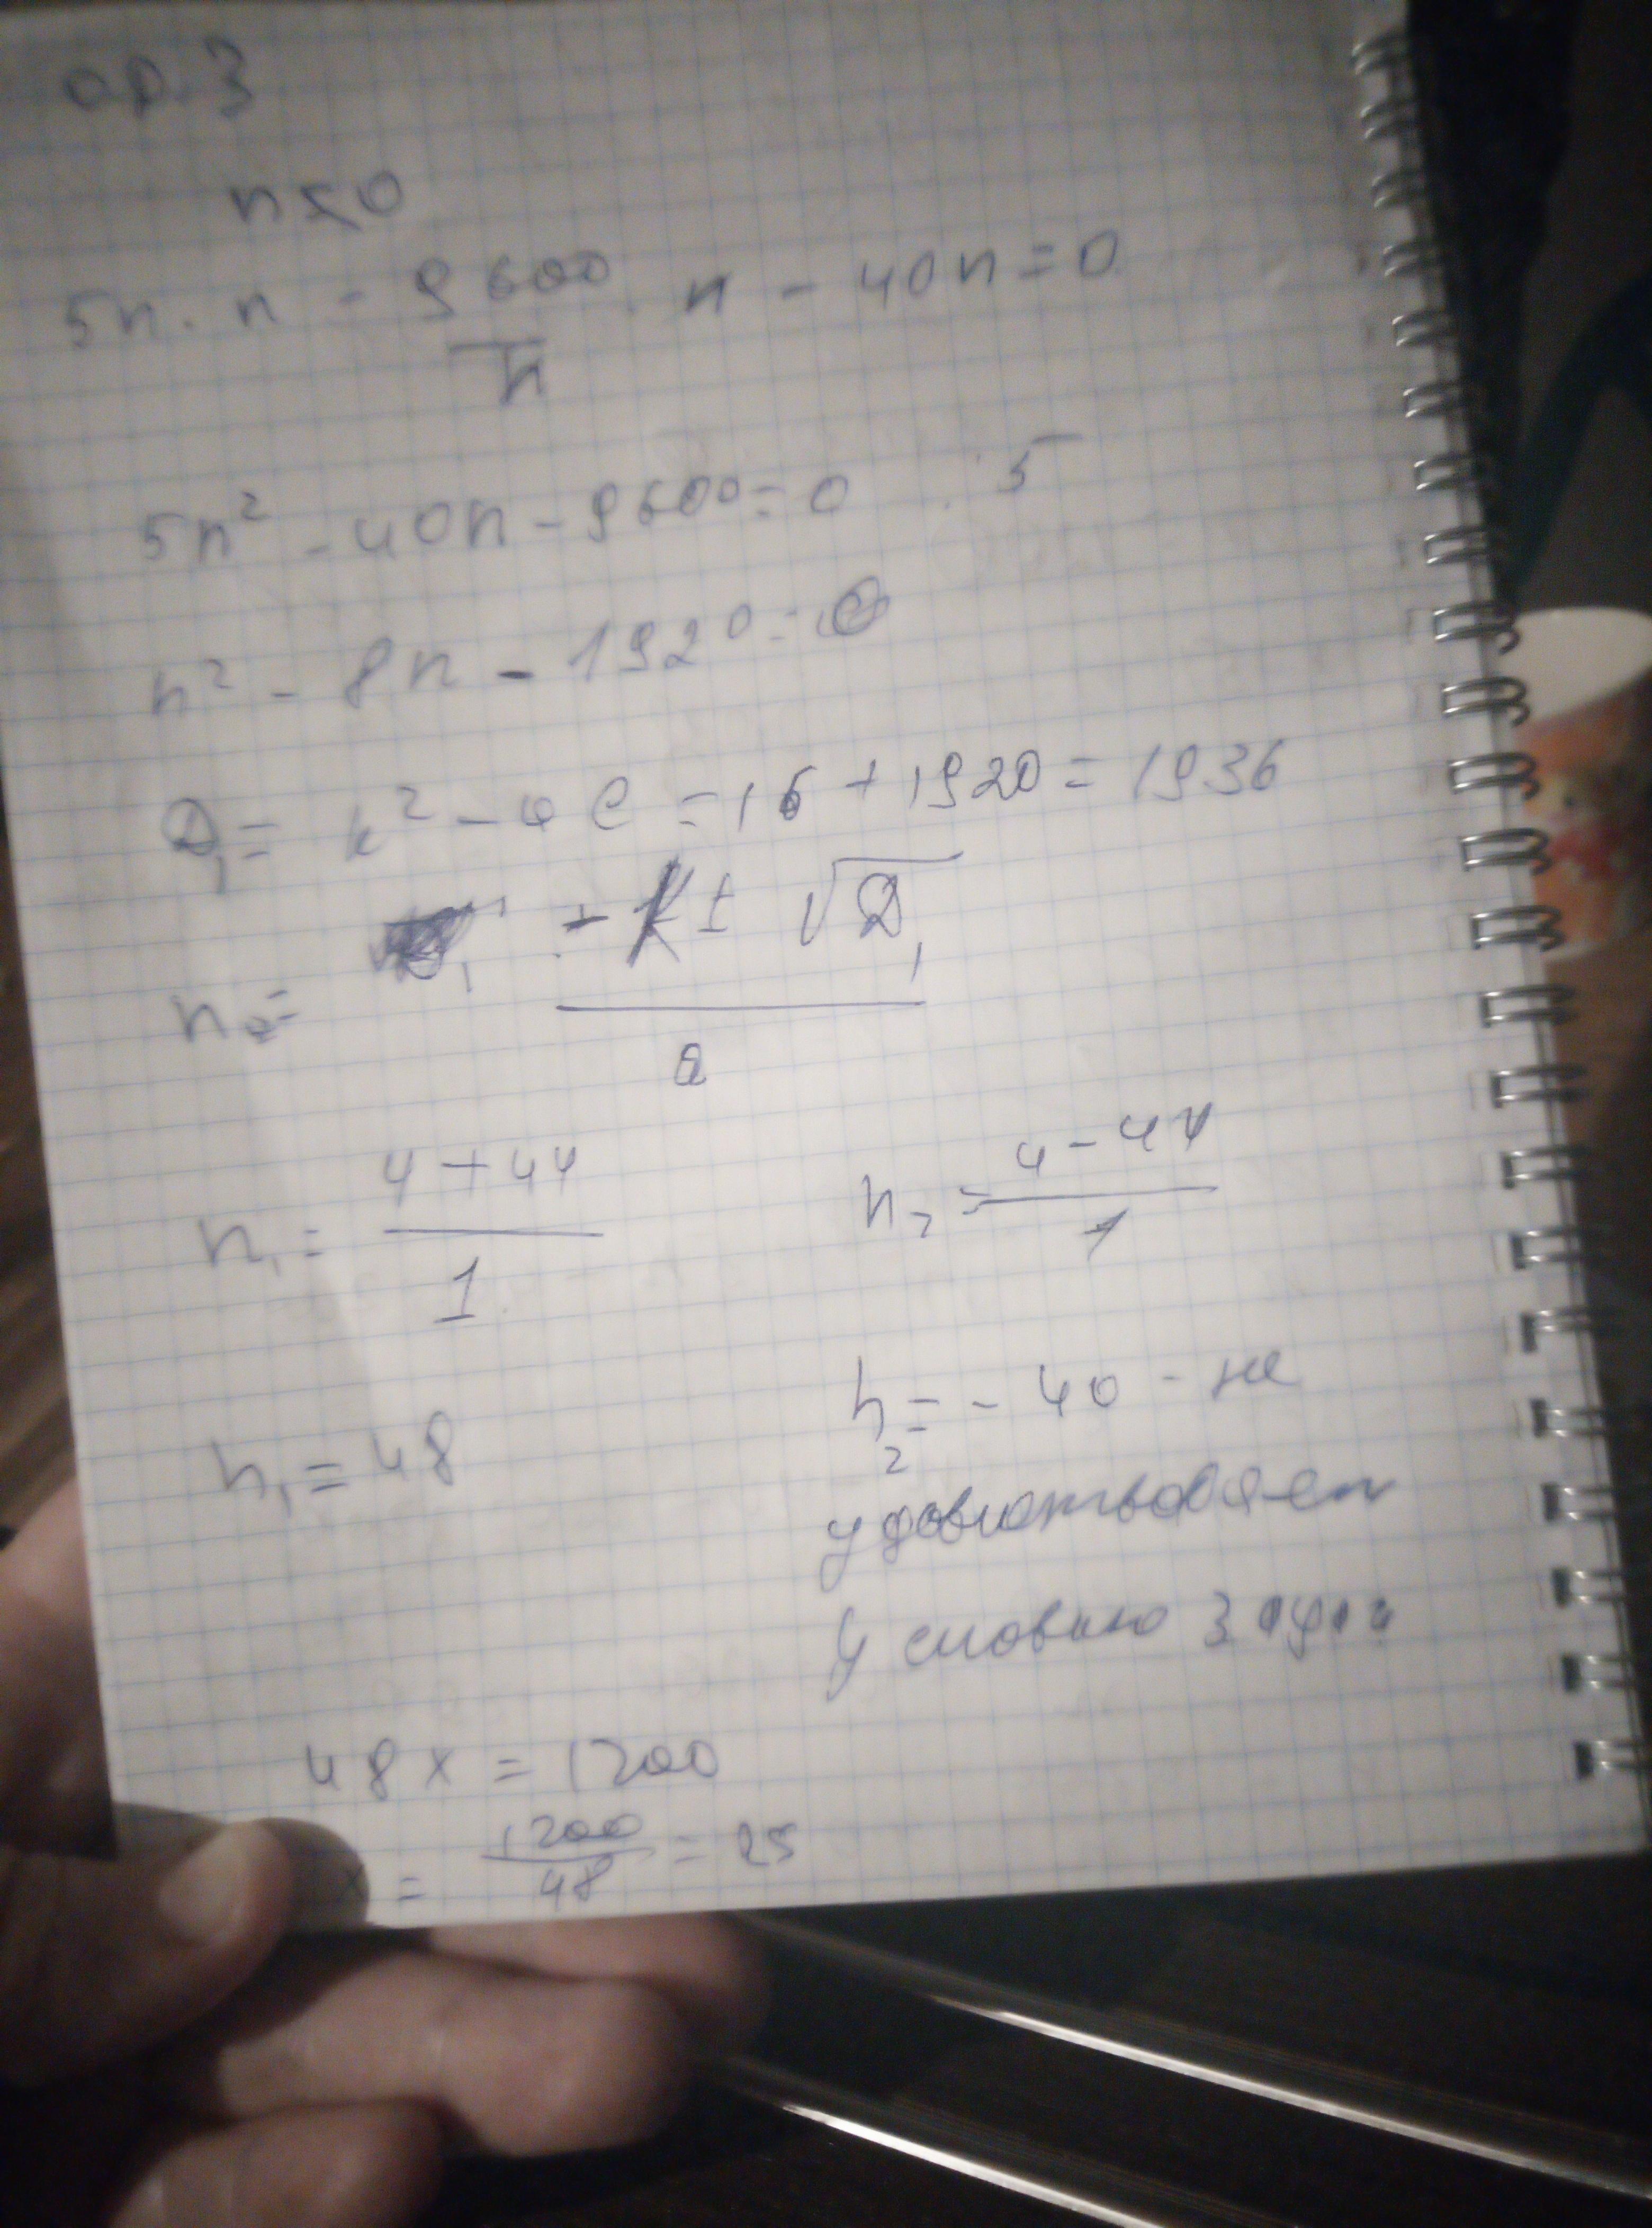 стр. 3
n ≤ 0
5n · n - 9600/n · n - 40n = 0
5n² - 40n - 9600 = 0 : 5
n² - 8n - 1920 = 0
D₁ = k² - ac = 16 + 1920 = 1936
n = (-k ± √D₁)/a
n₁ = (4 + 44)/1 n₂ = (4 - 44)/1
n₁ = 48 n₂ = -40 - не
удовлетворяет
условию задачи
48x = 1200
x = 1200/48 = 25